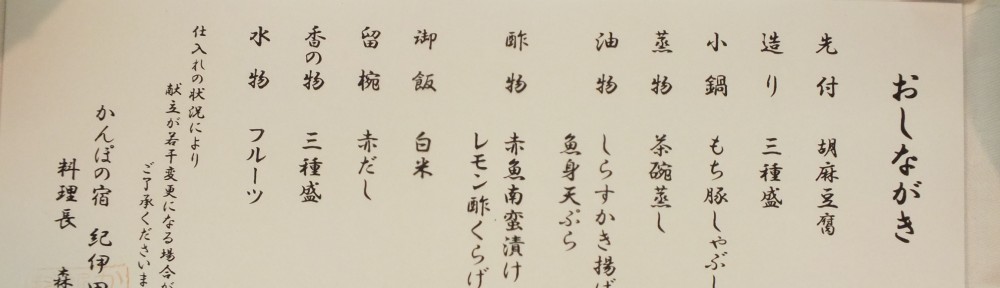 おしながき
先付 胡麻豆腐
造り 三種盛
小鍋 もち豚しゃぶし
蒸物 茶碗蒸し
油物 しらすかき揚げ
魚身天ぷら
酢物 赤魚南蛮漬け
レモン酢くらげ
御飯 白米
留椀 赤だし
香の物 三種盛
水物 フルーツ
仕入れの状況により
献立が若干変更になる場合が
ご了承くださいま
かんぽの宿 紀伊田
料理長 森